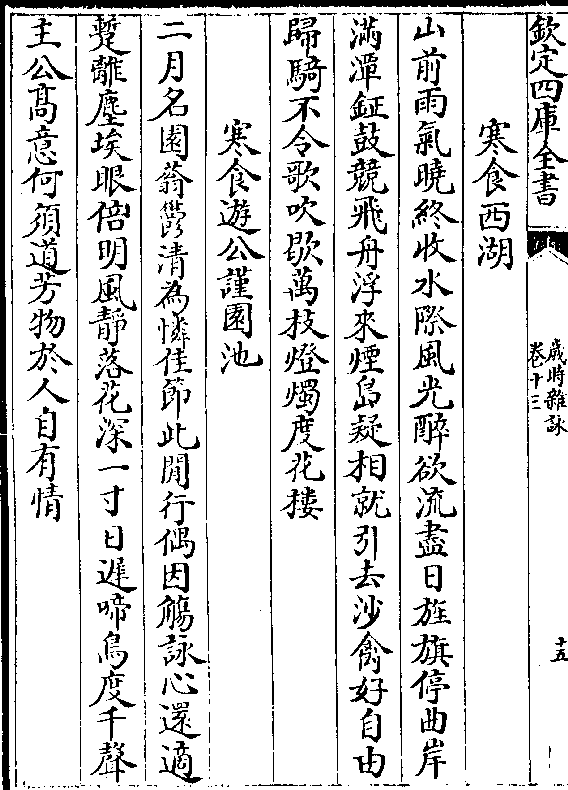 欽定四庫全書
歲時雜詠
卷十三
十五
寒食西湖
山前雨氣曉終收水際風光醉欲流盡日旌旗停曲岸
滿潭鉦鼓競飛舟浮來煙島疑相就引去沙禽好自由
歸騎不令歌吹歇萬枝燈燭度花樓
寒食遊公謹園池
二月名園蓊鬱清為憐佳節此閒行偶因觴詠心還適
蹔離塵埃眼倍明風靜落花深一寸日遲啼鳥度千聲
主公髙意何須道芳物於人自有情